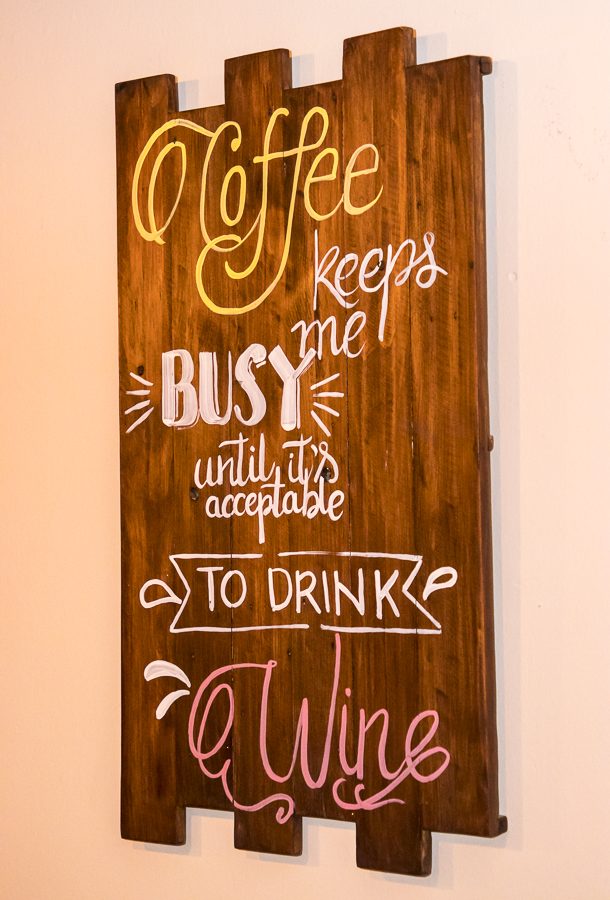 Coffee
keeps
me
BUSY
until it's
acceptable
TO DRINK
Wine